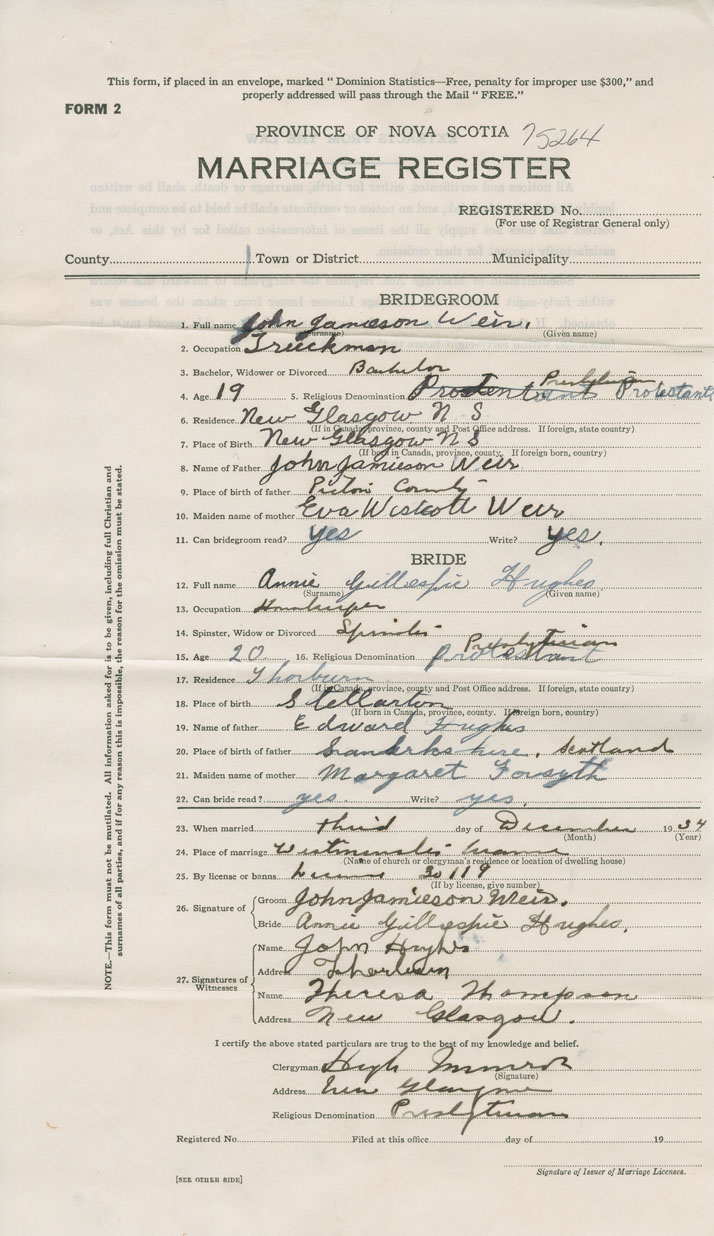 This form, if placed in an envelope, marked " Dominion Statistics—Free, penalty for improper use $300," and
properly addressed will pass through the Mail " FREE."
FORM 2
PROVINCE OF NOVA SCOTIA 75264
MARRIAGE REGISTER
REGISTERED No.
(For use of Registrar General only)
County Town or District Municipality
BRIDEGROOM
1. Full name John Jamieson Weir.
(Surname) (Given name)
2. Occupation Truckman
3. Bachelor, Widower or Divorced Bachelor
4. Age 19 5. Religious Denomination Presbyterian Protestant
6. Residence New Glasgow N S
(If in Canada, province, county and Post Office address. If foreign, state country)
7. Place of Birth New Glasgow N S
(If born in Canada, province, county. If foreign born, country)
8. Name of Father John Jamieson Weir
9. Place of birth of father Pictou County
10. Maiden name of mother Eva Wescott Weir
11. Can bridegroom read? yes Write? yes.
BRIDE
12. Full name Annie Gillespie Hughes
(Surname) (Given name)
13. Occupation Housekeeper
14. Spinster, Widow or Divorced Spinster
15. Age 20 16. Religious Denomination Presbyterian Protestant
17. Residence Thorburn
(If in Canada, province, county and Post Office address. If foreign, state country)
18. Place of birth Stellarton
(If born in Canada, province, county. If foreign born, country)
19. Name of father Edward Hughes
20. Place of birth of father Lanarkshire, Scotland
21. Maiden name of mother Margaret Forsyth
22. Can bride read? yes. Write? yes.
23. When married third day of December 1934
(Month) (Year)
24. Place of marriage Westminster Manse
(Name of church or clergyman's residence or location of dwelling house)
25. By license or banns License 30119
(If by license, give number)
26. Signature of
Groom John Jamieson Weir.
Bride Annie Gillespie Hughes.
27. Signatures of Witnesses
Name John Hughes
Address Thorburn
Name Theresa Thompson
Address New Glasgow.
I certify the above stated particulars are true to the best of my knowledge and belief.
Clergyman Hugh Munroe
(Signature)
Address New Glasgow
Religious Denomination Presbyterian
Registered No. Filed at this office day of 19
Signature of Issuer of Marriage Licenses.
[SEE OTHER SIDE]
NOTE.—This form must not be mutilated. All information asked for is to be given, including full Christian and
surnames of all parties, and if for any reason this is impossible, the reason for the omission must be stated.